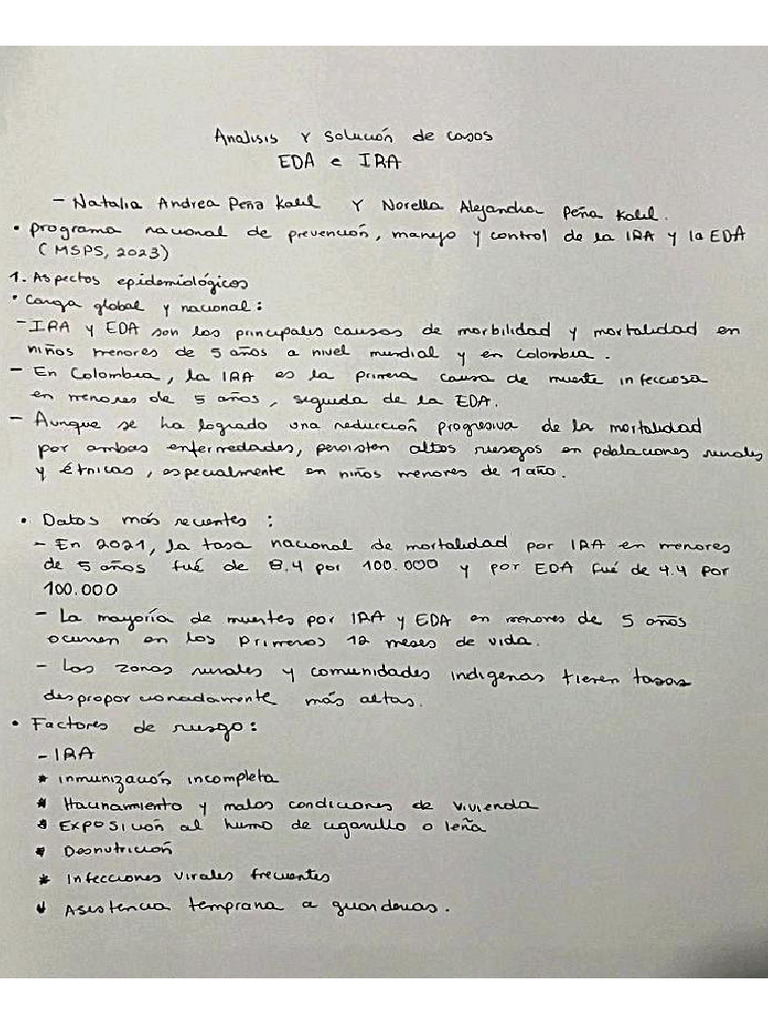 Analisis Y solución de casos
EDA e IRA
- Natalia Andrea Peña Kalil Y Norella Alejandra Peña Kalil.
• programa nacional de prevención, manejo y control de la IRA y la EDA
(MSPS, 2023)
1. Aspectos epidemiológicos
• Carga global y nacional:
- IRA y EDA son las principales causas de morbilidad y mortalidad en
niños menores de 5 años a nivel mundial y en Colombia.
- En Colombia, la IRA es la primera causa de muerte infecciosa
en menores de 5 años, seguida de la EDA.
- Aunque se ha logrado una reducción progresiva de la mortalidad
por ambas enfermedades, persisten altos riesgos en poblaciones rurales
y étnicas, especialmente en niños menores de 1 año.
• Datos más recientes:
- En 2021, la tasa nacional de mortalidad por IRA en menores
de 5 años fué de 8.4 por 100.000 y por EDA fué de 4.4 por
100.000
- La mayoría de muertes por IRA y EDA en menores de 5 años
ocurren en los primeros 12 meses de vida.
- Las zonas rurales y comunidades indigenas tienen tasas
desproporcionadamente más altas.
• Factores de riesgo:
- IRA
* inmunización incompleta
* Hacinamiento y malas condiciones de vivienda
* Exposición al humo de cigarrillo o leña
* Desnutrición
* Infecciones virales frecuentes
* Asistencia temprana a guarderias.